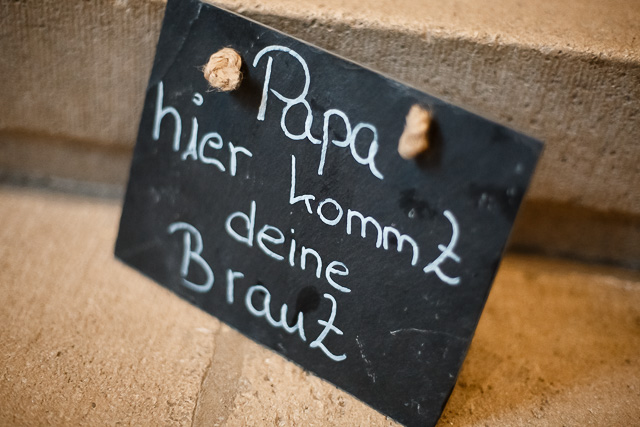 Papa
hier kommt
deine
Braut